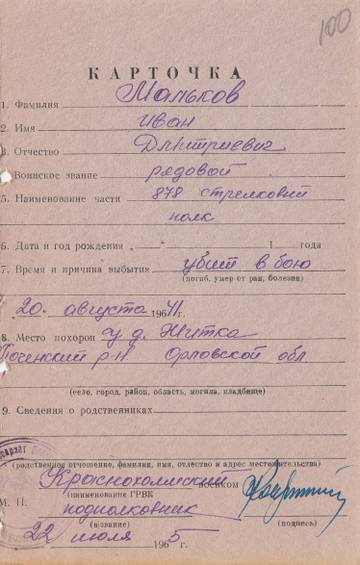 100
КАРТОЧКА
1. Фамилия Мальков
2. Имя Иван
3. Отчество Дмитриевич
Воинское звание рядовой
5. Наименование части 878 стрелковий
полк
6. Дата и год рождения 1 года
7. Время и причина выбытия убит в бою
(погиб, умер от ран, болезни)
20. августа 1941г.
8. Место похорон у д. Житка
Почепский р-н Орловской обл
(село, город, район, область, могила, кладбище)
9. Сведения о родственниках
(родственное отношение, фамилия, имя, отчество и адрес местожительства)
Краснохолмский военком
(наименование ГРВК
М. П. подполковник
(звание) (подпись)
22 июля 1965 г.